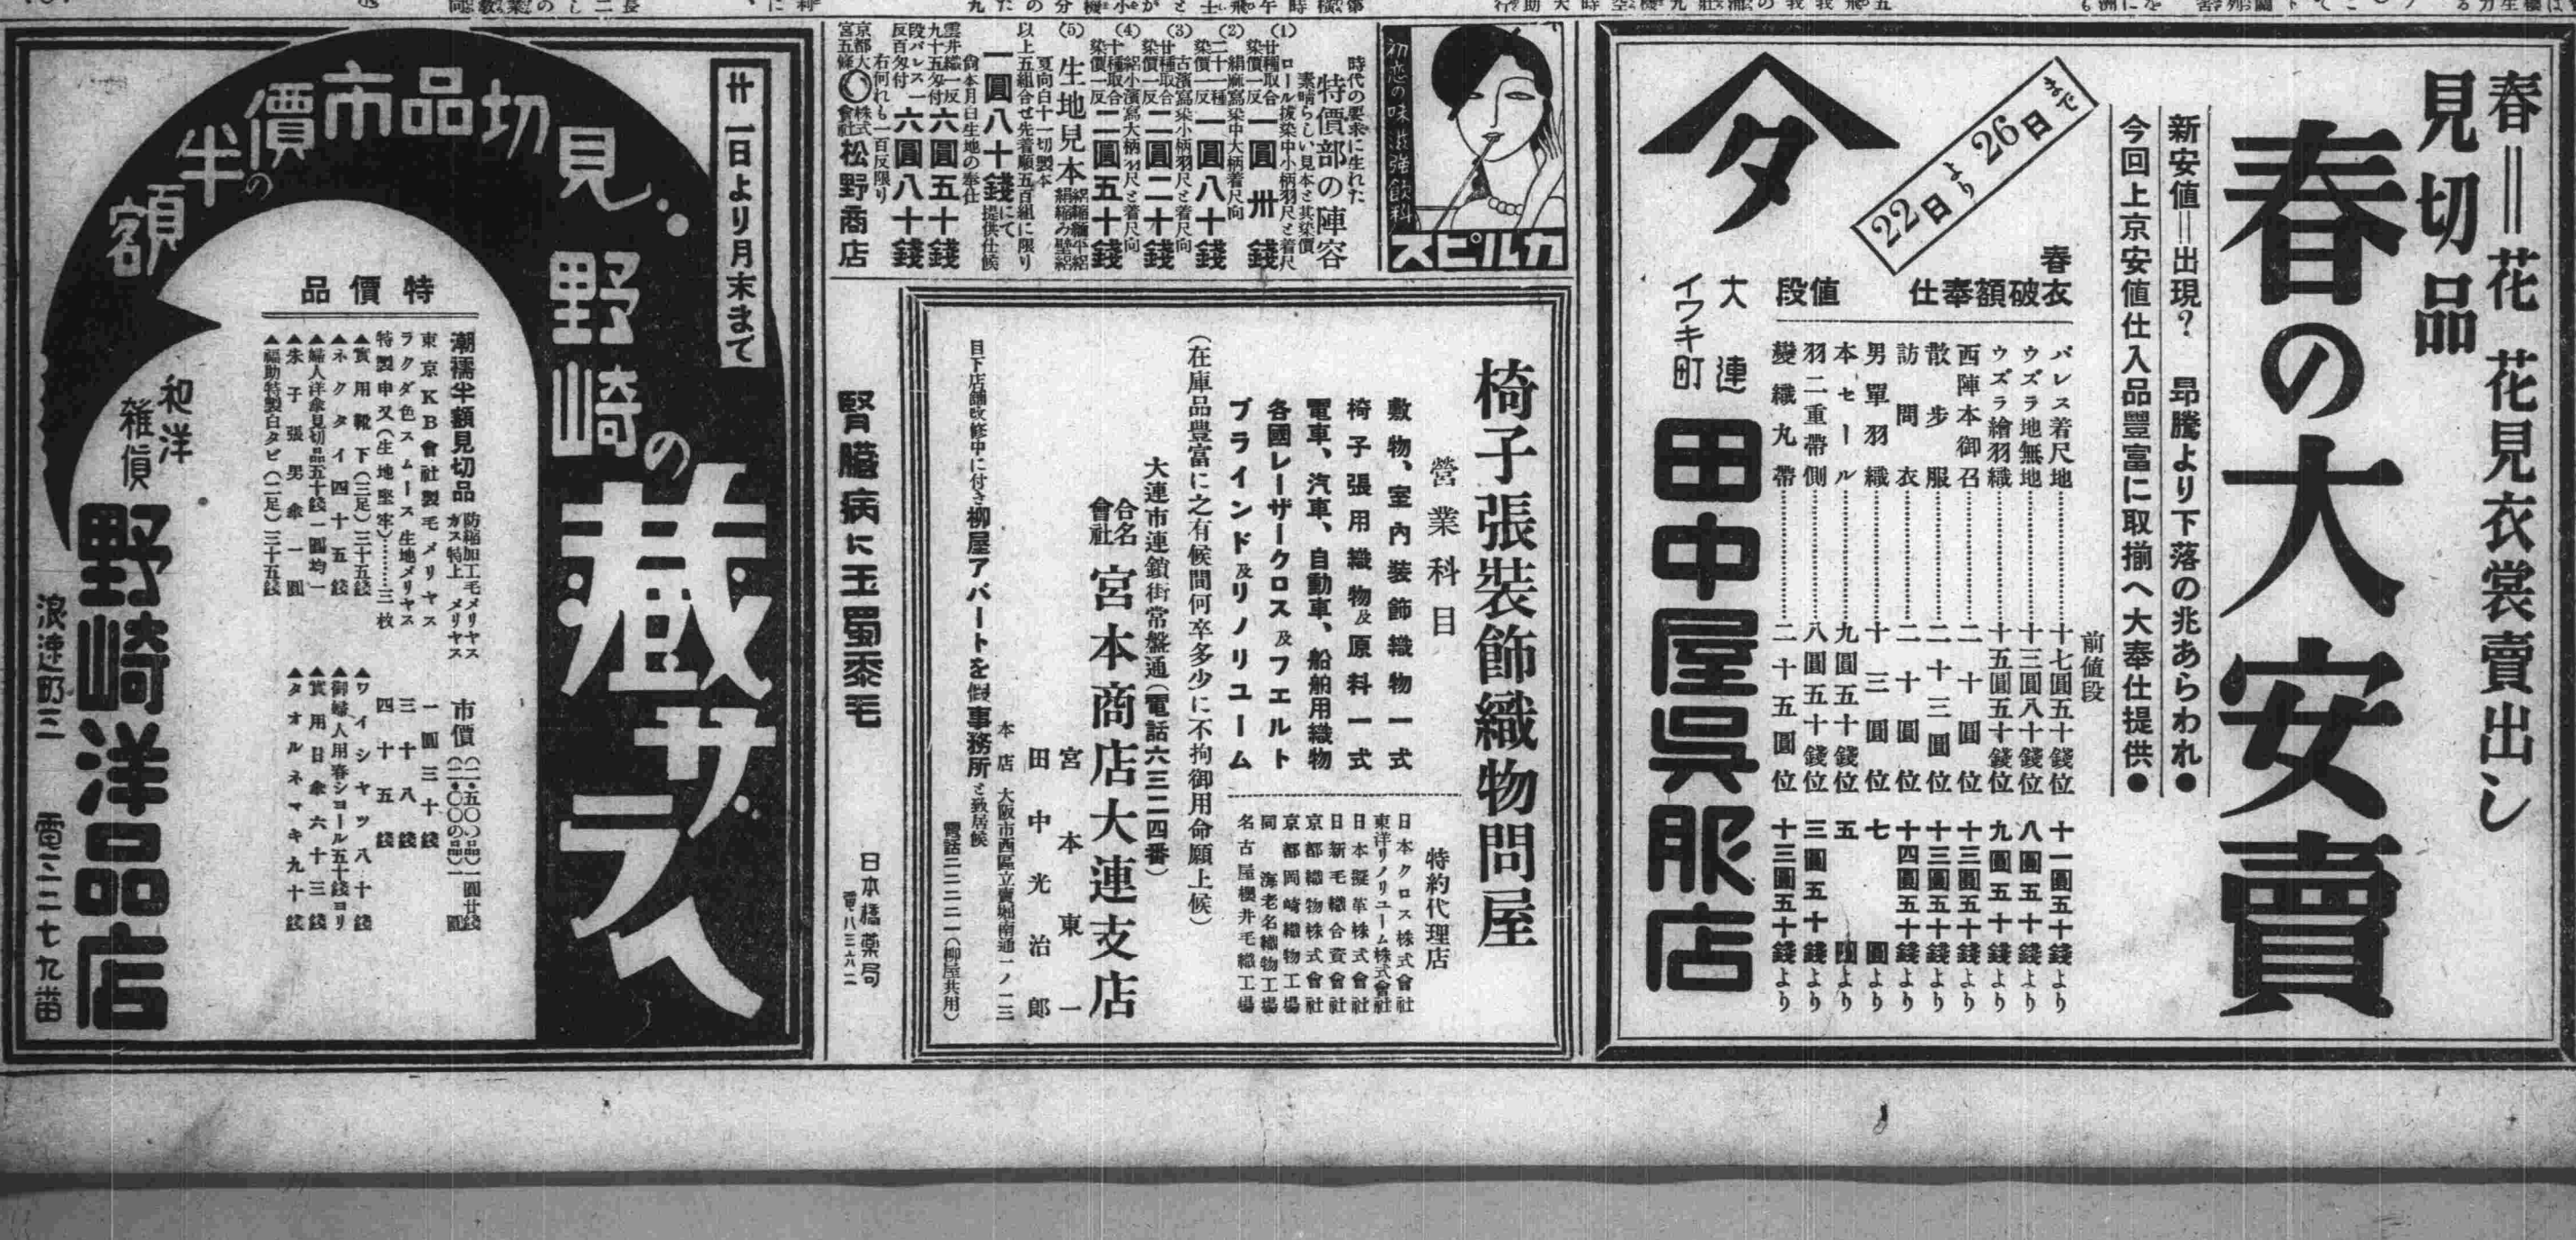 春＝花 花見衣裳賣出し
見切品
春の大安賣
新安値＝出現？ 昂騰より下落の兆あらわれ●
今回上京安値仕入品豐富に取揃へ大奉仕提供●
22日より26日まで
春衣破額奉仕値段
前値段
パレス着尺地 十七圓五十錢位 十一圓五十錢より
ウズラ地無地 十三圓八十錢位 八圓五十錢より
ウズラ繪羽織 十五圓五十錢位 九圓五十錢より
西陣本御召 二十圓位 十三圓五十錢より
散歩服 二十三圓位 十三圓五十錢より
訪問衣 二十圓位 十四圓五十錢より
男單羽織 十三圓位 七圓より
本セール 九圓五十錢位 五圓より
羽二重帶側 八圓五十錢位 三圓五十錢より
變織丸帶 二十五圓位 十三圓五十錢より
タ
大連
イワキ町
田中屋呉服店
初恋の味 滋強飲料
カルピス
時代の要求に生れた
特價部の陣容
素晴らしい見本と其染價
(1) ロール拔染中小柄羽尺と着尺
廿種取合
染價一反 一圓卅錢
(2) 絹麻寫染中大柄着尺向
二十一種
染價一反 一圓八十錢
(3) 古濱寫染小柄羽尺と着尺向
廿種取合
染價一反 二圓二十錢
(4) 絽小濱寫大柄羽尺と着尺向
十種取合
染價一反 二圓五十錢
(5) 生地見本
夏向白十一切製本
以上五組合せ先着順五百組に限り
一圓八十錢にて提供仕候
尚本月白生地の奉仕
雲井織一反
九十五匁付 六圓五十錢
段パレス一
反百匁付 六圓八十錢
右何れも一百反限り
京都大
宮五條 株式會社 松野商店
椅子張裝飾織物問屋
營業科目
敷物、室內裝飾織物一式
椅子張用織物及原料一式
電車、汽車、自動車、船舶用織物
各國レーザークロス及フエルト
ブラインド及リノリユーム
特約代理店
日本クロス株式會社
東洋リノリユーム株式會社
日本擬革株式會社
日新毛織合資會社
京都織物株式會社
京都岡崎織物工場
同 海老名織物工場
名古屋櫻井毛織工場
(在庫品豐富に之有候間何卒多少に不拘御用命願上候)
大連市連鎖街常盤通(電話六三二四番)
合名會社 宮本商店大連支店
宮本東一
田中光治郎
本店 大阪市西區立賣堀南通一ノ二三
目下店舗改修中に付き柳屋アパートを假事務所と致居候
電話二二二二一(柳屋共用)
腎臓病に玉蜀黍毛
日本橋藥局
電八三六二
廿一日より月末まで
見切品市價の半額
野崎の藏ザラへ
特價品
潮襦半額見切品 防縮加工毛メリヤス
ガス特上 メリヤス
東京KB會社製毛メリヤス 一圓三十錢
ラクダ色スムース生地メリヤス 三十八錢
特製申又(生地堅牢)………三枚 四十五錢
▲實用靴下(三足)三十五錢
▲ワイシヤツ八十錢
▲ネクタイ四十五錢
▲御婦人用春シヨール五十錢ヨリ
▲婦人洋傘見切品五十錢一圓均一
▲實用日傘六十三錢
▲朱子張男傘一圓
▲タオルネマキ九十錢
▲福助特製白タビ(二足)三十五錢
和洋雜貨
野崎洋品店
浪速町三 電三二七九番